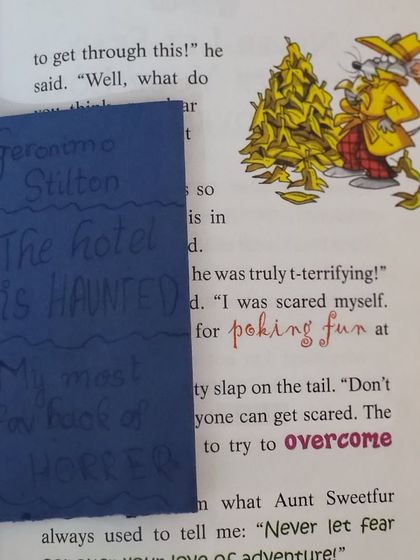 to get through this!” he
said. “Well, what do
you think
ar
t
Geronimo
Stilton
The hotel
is HAUNTED
My most
fav book of
HORRER
s so
is in
d.
he was truly t-terrifying!”
d. “I was scared myself.
for poking fun at
ty slap on the tail. “Don’t
yone can get scared. The
to try to overcome
m what Aunt Sweetfur
always used to tell me: “Never let fear
your love of adventure!”